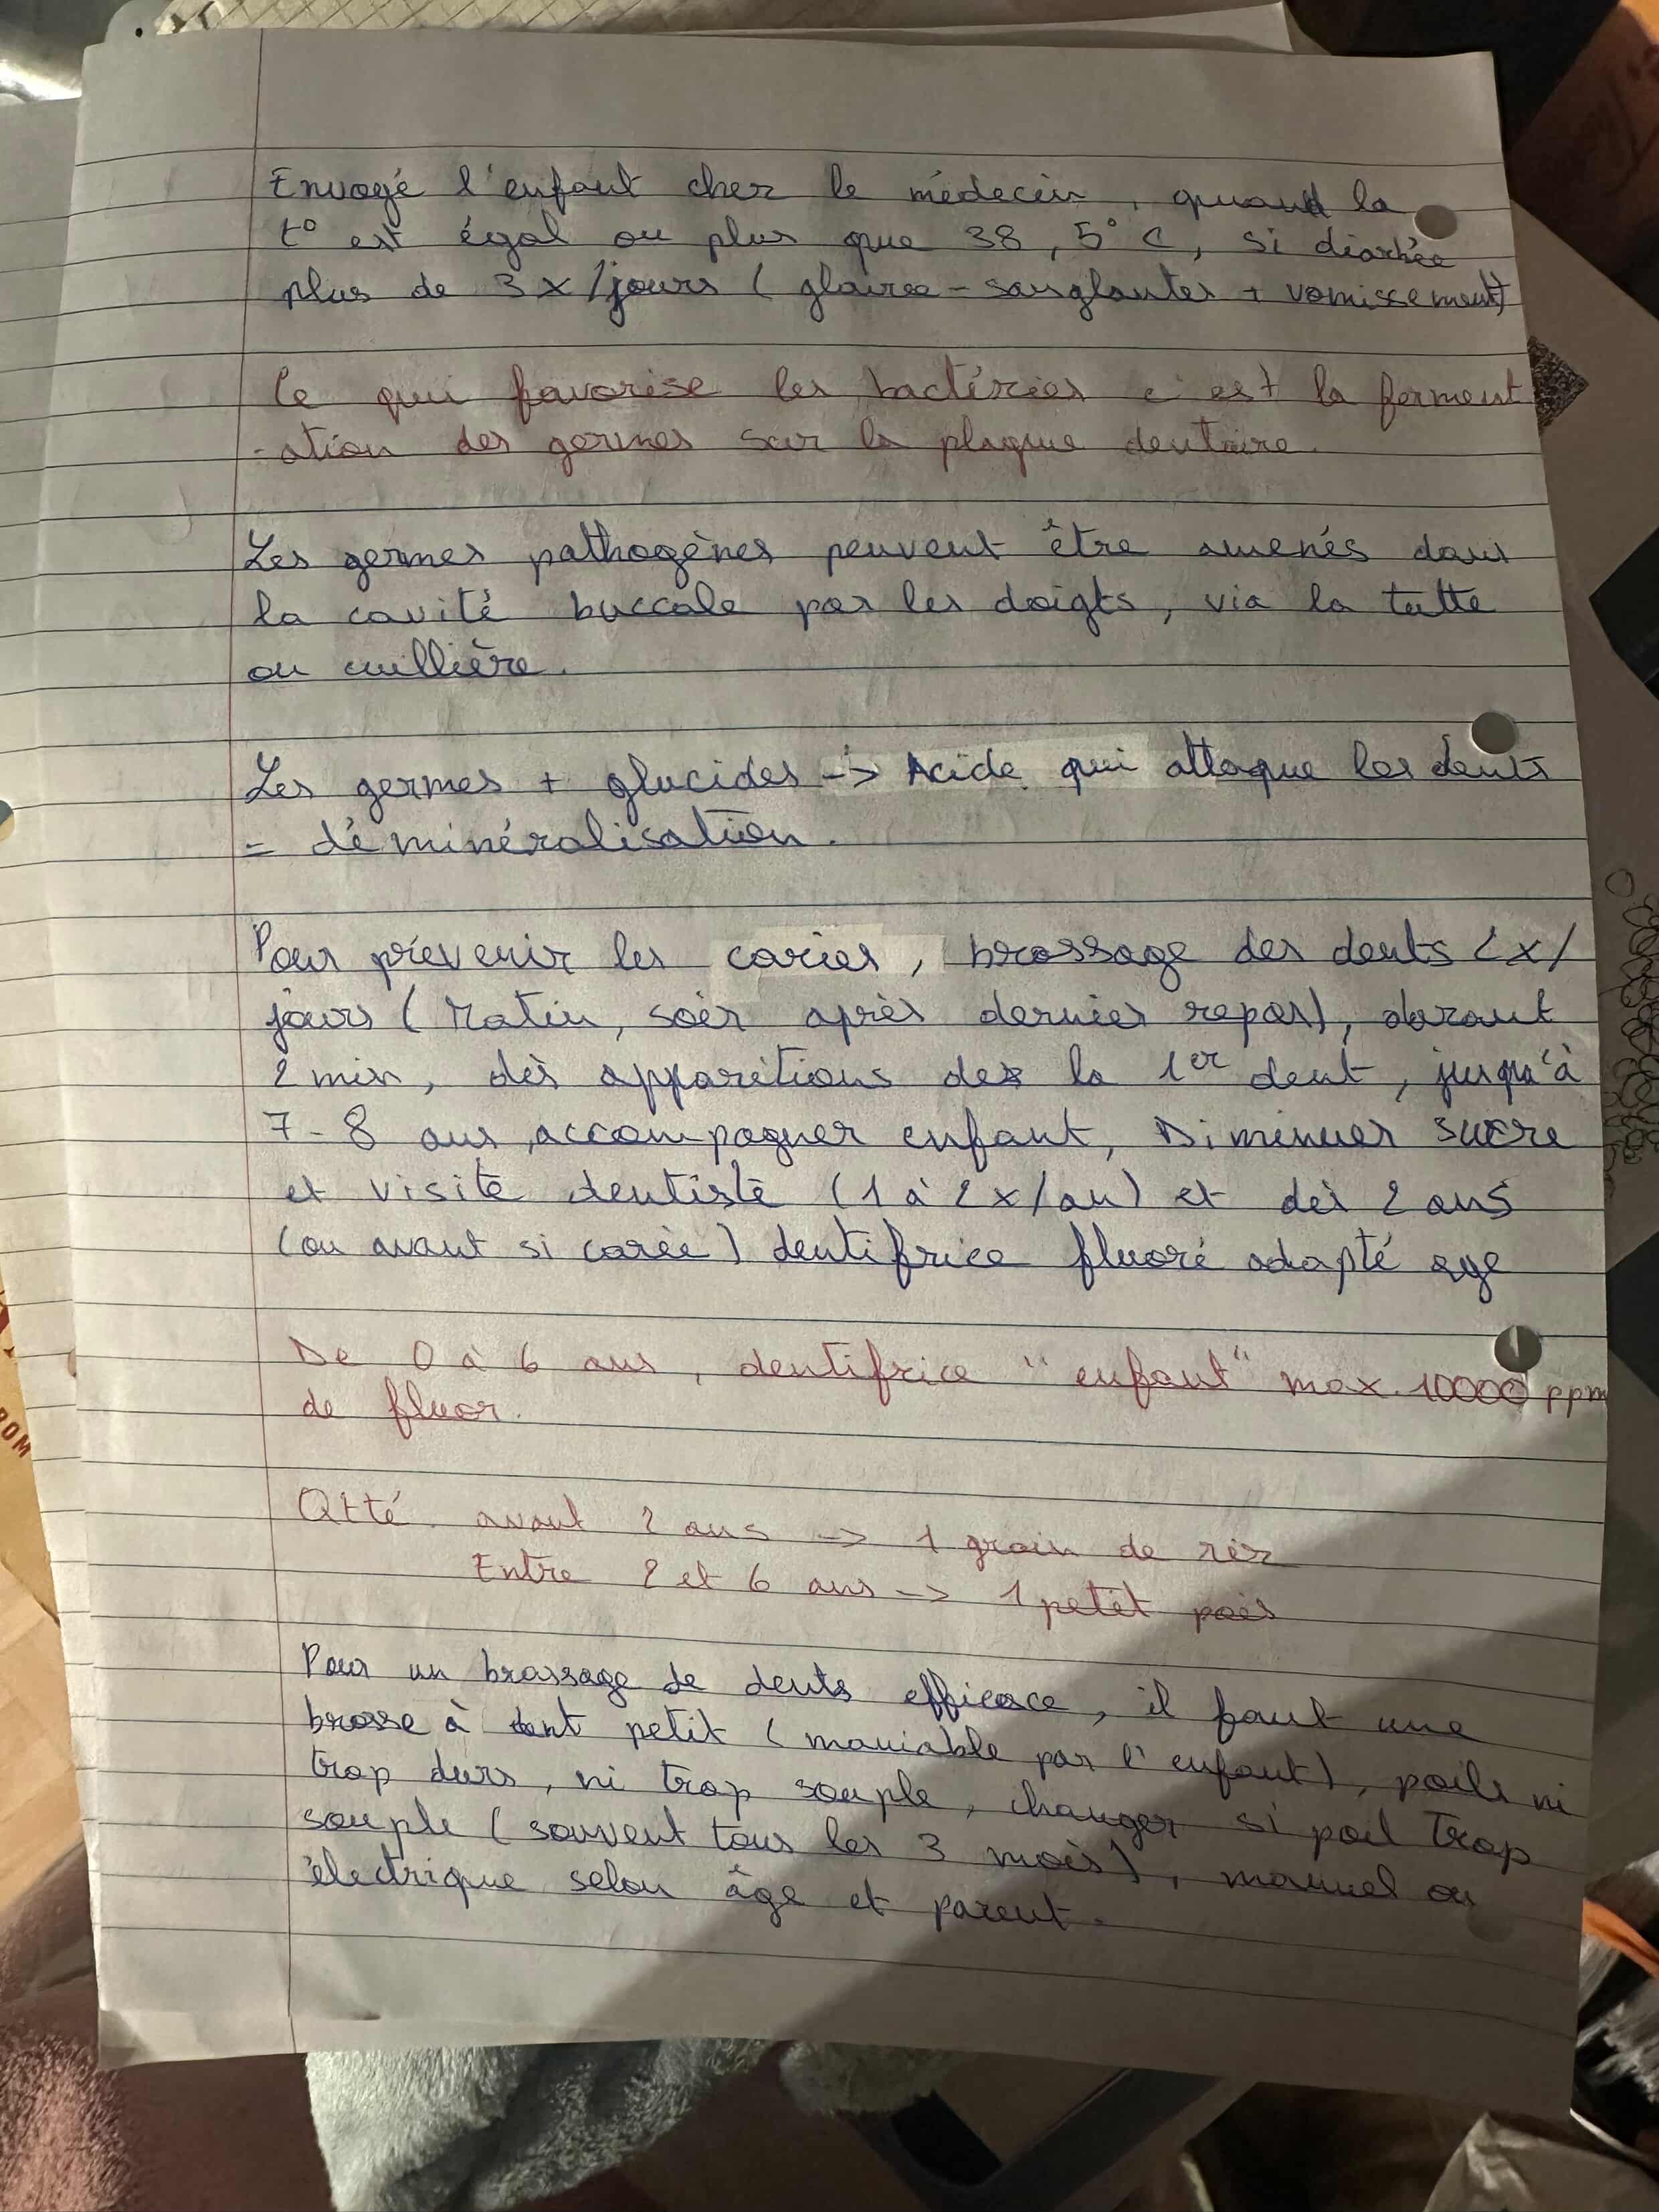 Envogé l'enfant cher le médecin, quand la
t° est égal ou plus que 38,5° C, si diarhée
plus de 3x/jours (glaires - sanglantes + vomissement)
Ce qui favorise les bactéries c'est la ferment
-ation des germes sur la plaque dentaire.
Les germes pathogènes peuvent être amenés dans
la cavité buccale par les doigts, via la tutte
ou cuillière.
Les germes + glucides -> Acide qui attaque les dents
= déminéralisation.
Pour prévenir les caries, brossage des dents 2x/
jours (Matin, soir après dernier repas), durant
2 min, dès apparitions de la 1er dent, jusqu'à
7-8 ans accompagner enfant, Diminuer sucre
et visite dentiste (1 à 2x/an) et dès 2 ans
(ou avant si carie) dentifrice fluoré adapté age
De 0 à 6 ans, dentifrice "enfant" max. 10000 ppm
de fluor.
Qtté avant 2 ans -> 1 grain de riz
Entre 2 et 6 ans -> 1 petit pois
Pour un brossage de dents efficace, il faut une
brosse à dent petit (maniable par l'enfant), poils ni
trop durs, ni trop souple, changer si poil trop
souple (souvent tous les 3 mois), manuel ou
électrique selon âge et parent.